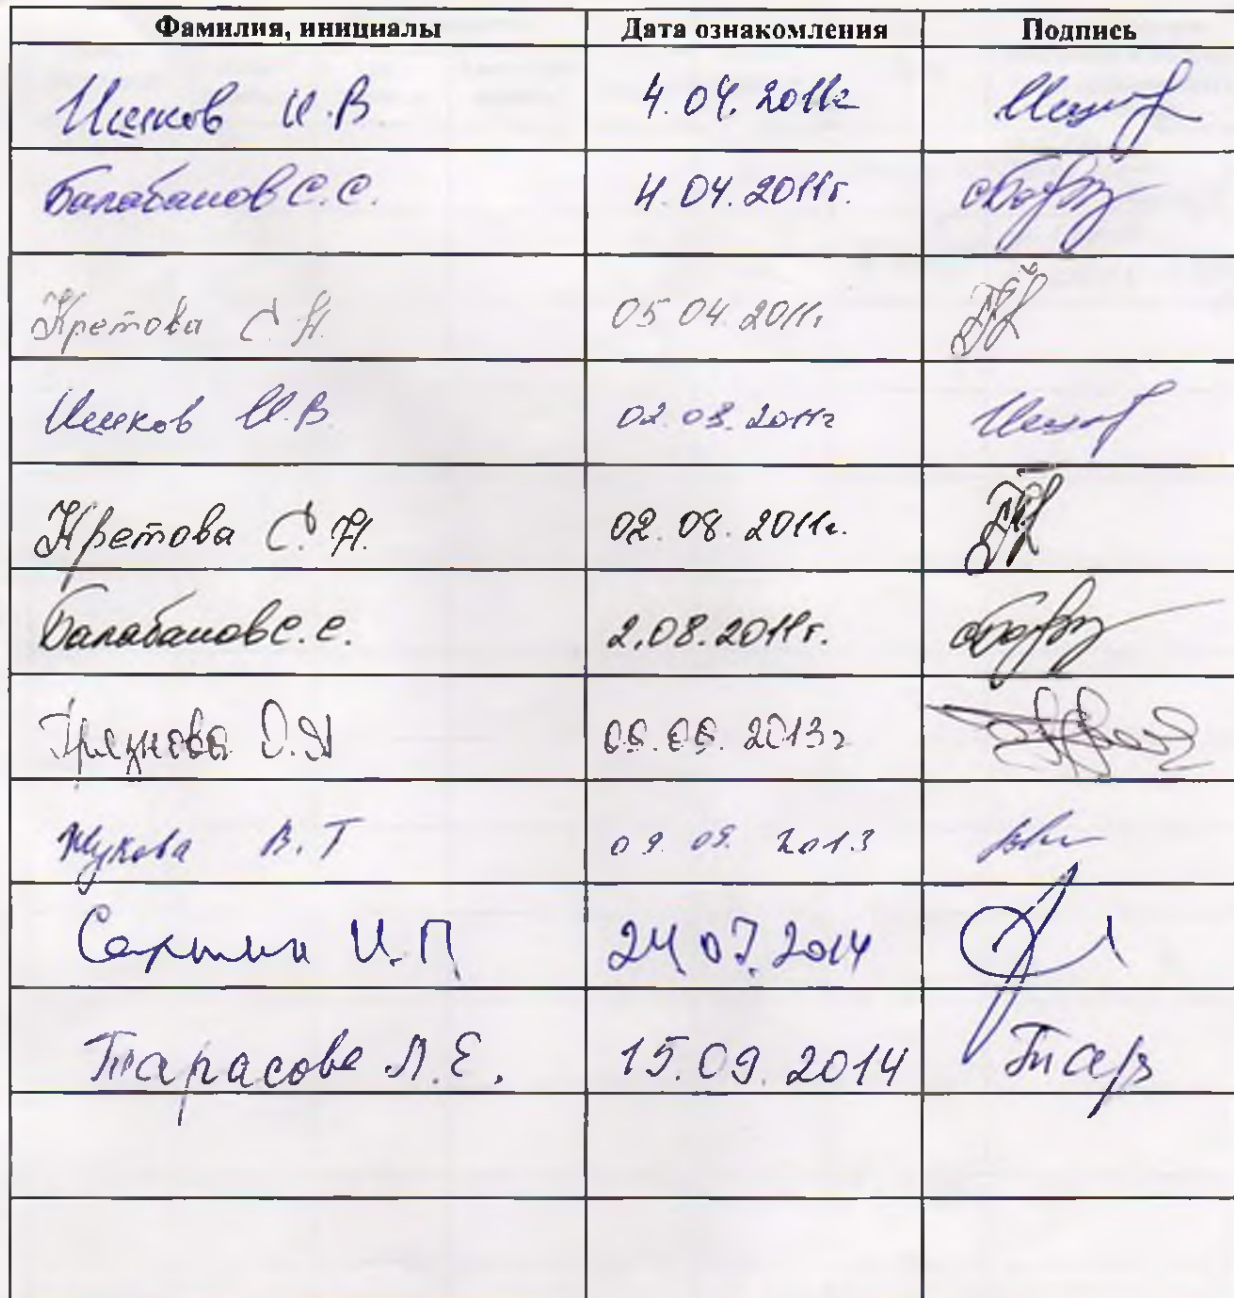 Фамилия, инициалы Дата ознакомления Подпись
Ишков И.В. 4.04.2011г
Балабанов С.С. 4.04.2011г.
Кретова С.Н. 05.04.2011г
Ишков И.В. 02.08.2011г
Кретова С.Н. 02.08.2011г.
Балабанов С.С. 2.08.2011г.
О.А 06.06.2013г
Жукова В.Т 09.09.2013
И.П 24.07.2014
Тарасова Л.Е. 15.09.2014